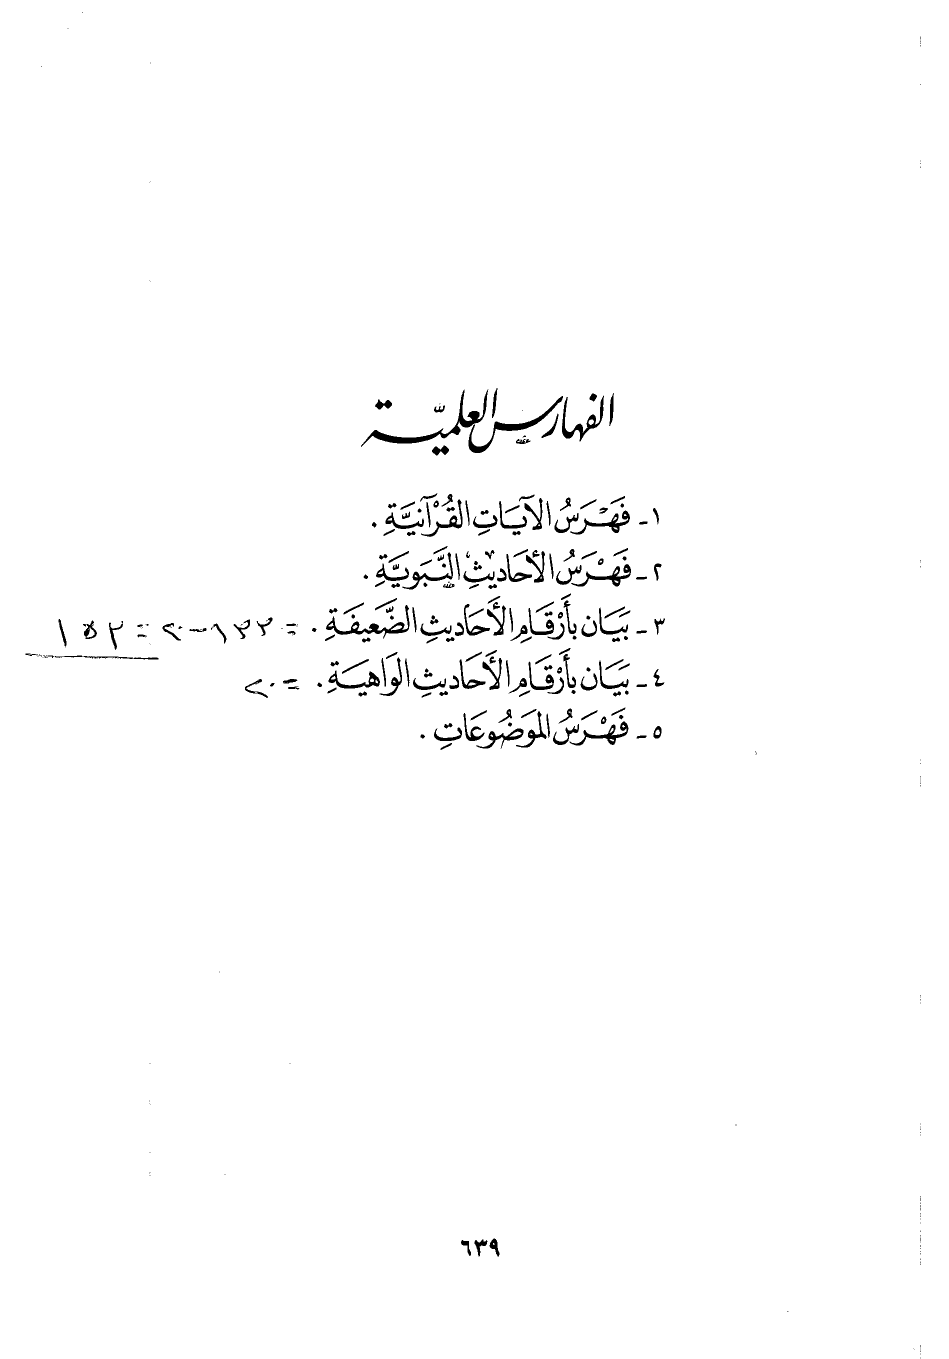 الفهارس العلميّة
١- فَهْرَسُ الآيَاتِ القُرْآنيَّةِ .
٢- فَهْرَسُ الأحَاديْثِ النَّبَويَّةِ .
٣- بَيَان بأَرْقَامِ الأَحَاديثِ الضَّعيفَةِ . =
٤- بَيَان بأَرْقَامِ الأَحَاديثِ الوَاهيَةِ . = ٢٠
٥- فَهْرَسُ المَوَضُوعَاتِ .
٦٣٩